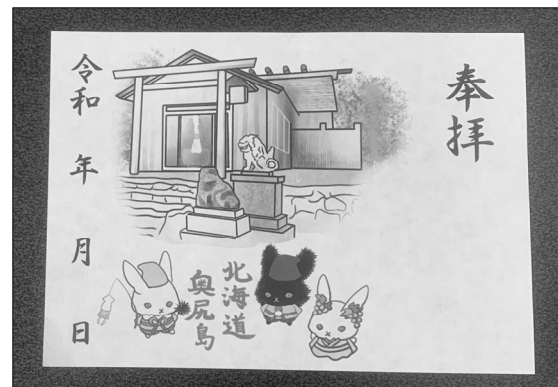 奉拝
北海道
奥尻島
令和　年　月　日